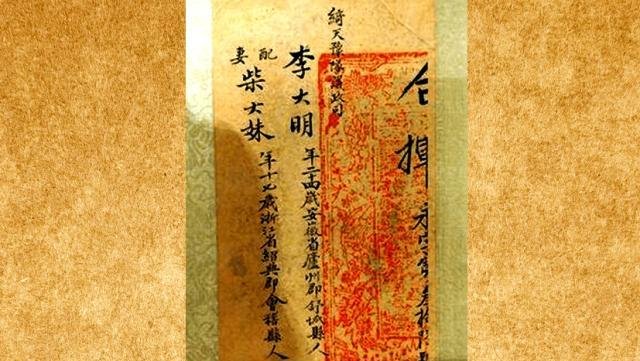 合揮
綺天豫隊僚政司
李大明年二十四歲安徽省廬州郡舒城縣人
配妻柴大妹年十九歲浙江省紹興郡會稽縣人